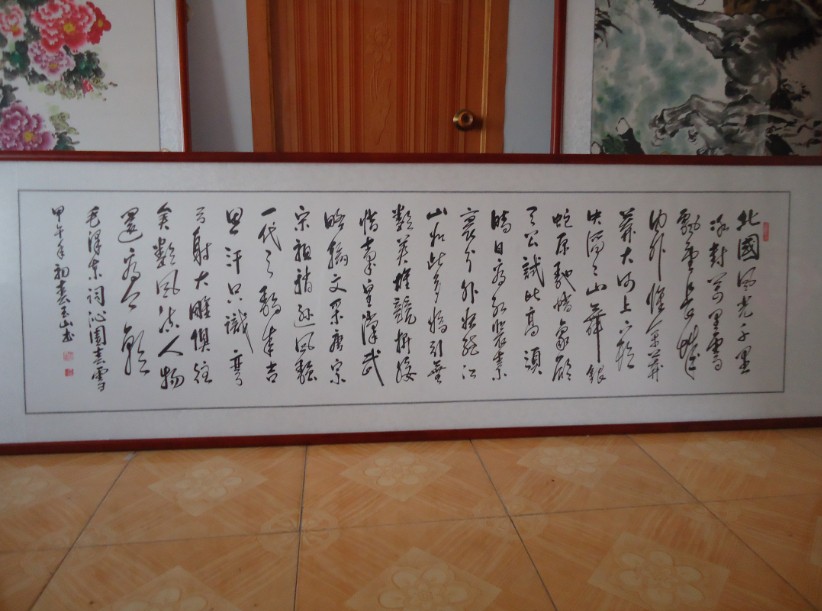 北國風光千里
冰封萬里雪
飄望長城
内外惟余莽
莽大河上下頓
失滔滔山舞銀
蛇原馳蜡象欲与
天公試比高須
晴日看紅裝素
裹分外妖娆江
山如此多嬌引無
數英雄競折腰
惜秦皇漢武
略輸文采唐宗
宋祖稍遜風騷
一代天驕成吉
思汗只識彎
弓射大雕俱往
矣數風流人物
還看今朝
毛澤東詞沁園春雪
甲午年初春玉山书